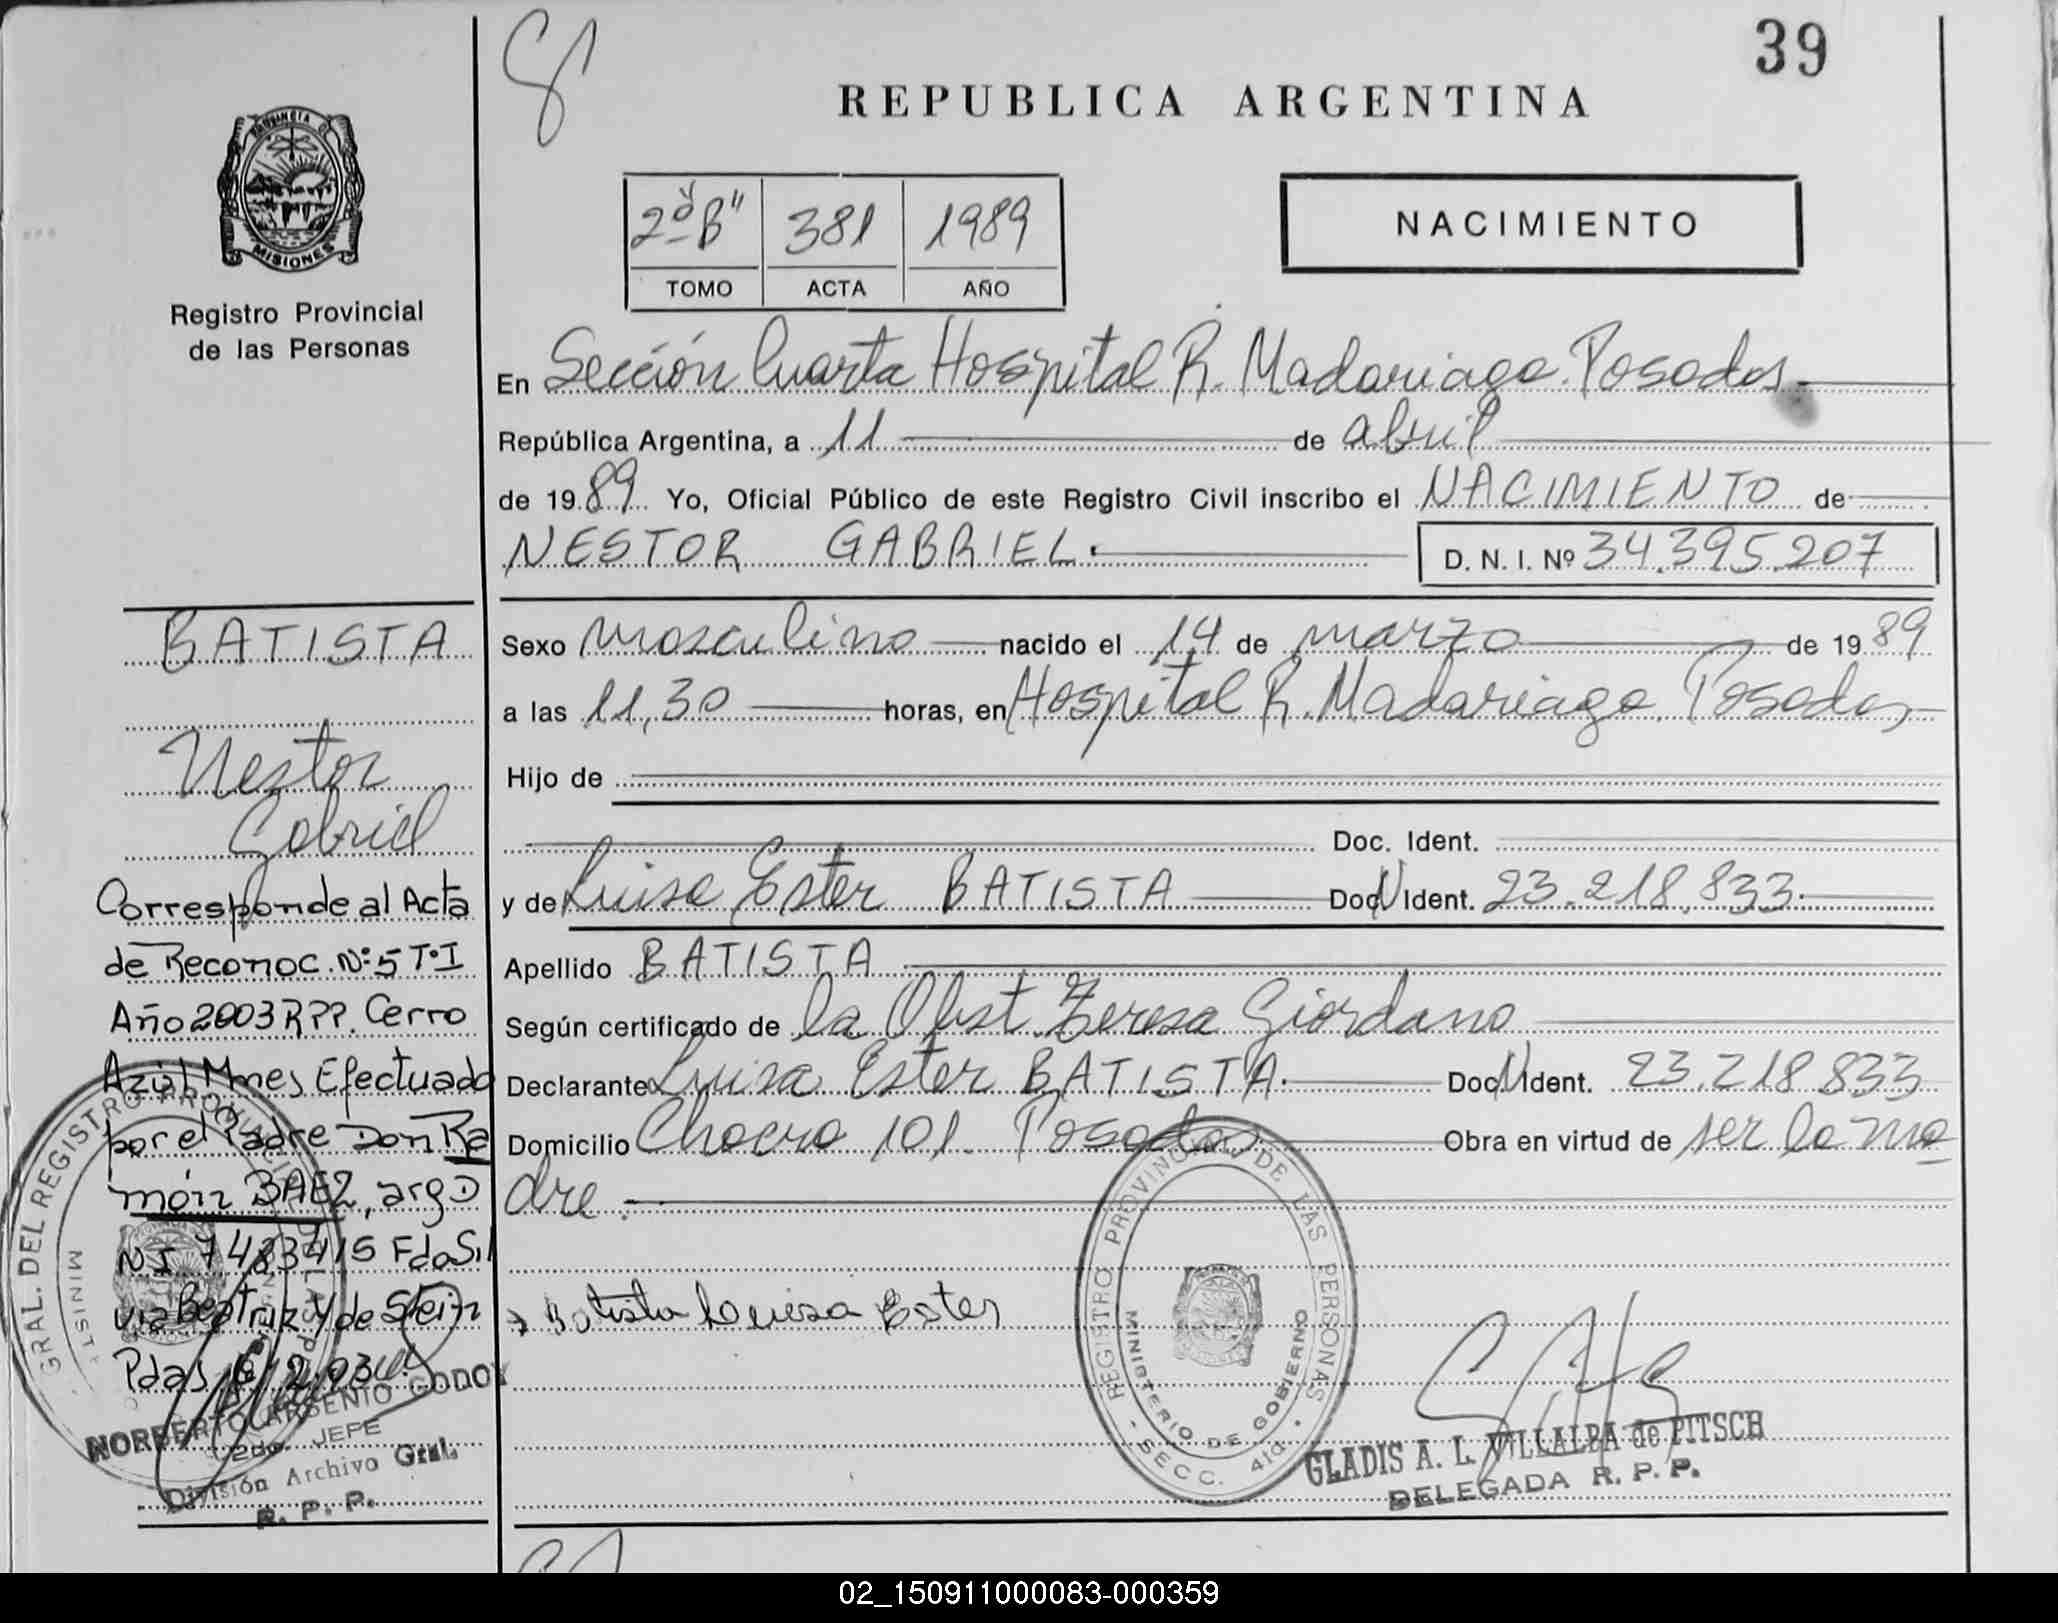 39
REPUBLICA ARGENTINA
PROVINCIA D
MISIONES
Registro Provincial
de las Personas
2º "B" 381 1989
TOMO ACTA AÑO
NACIMIENTO
En Sección Cuarta Hospital R. Madariaga. Posadas
República Argentina, a 11 de abril
de 1989 Yo, Oficial Público de este Registro Civil inscribo el NACIMIENTO de
NESTOR GABRIEL.
D. N. I. Nº 34.395.207
Sexo masculino nacido el 14 de marzo de 1989
a las 11,30 horas, en Hospital R. Madariaga. Posadas
Hijo de
Doc. Ident.
y de Luisa Ester BATISTA Doc. Ident. 23.218.833.
Apellido BATISTA
Según certificado de la Obst. Teresa Giordano
Declarante Luisa Ester BATISTA. Doc. Ident. 23.218.833
Domicilio Chacra 101. Posadas. Obra en virtud de ser la ma
dre.
Batista Luisa Ester
REGISTRO PROVINCIAL DE LAS PERSONAS
MINISTERIO DE GOBIERNO
- SECC. 4ta. -
GLADIS A. L. VILLALBA de PITSCH
DELEGADA R. P. P.
BATISTA
Nestor
Gabriel
Corresponde al Acta
de Reconoc. Nº:5 Tº I
Año 2003 RPP. Cerro
Azul Mnes Efectuado
por el Padre Don Ra
món BAEZ, arg D
NI 7483415 Fda Sil
via Beatriz y de Stein
Pdas
GRAL. DEL REGISTRO PROVINCIAL
MINIST
NORBERTO ARSENIO GODOY
2do. JEFE
División Archivo Gral.
R. P. P.
02_150911000083-000359